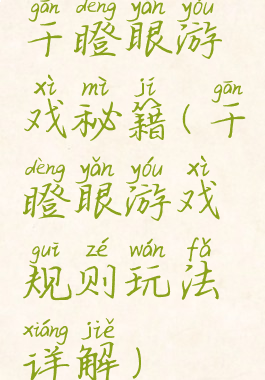 gān dèng yǎn yóu
干瞪眼游
xì mì jí gān
戏秘籍(干
dèng yǎn yóu xì
瞪眼游戏
guī zé wán fǎ
规则玩法
xiáng jiě
详解)